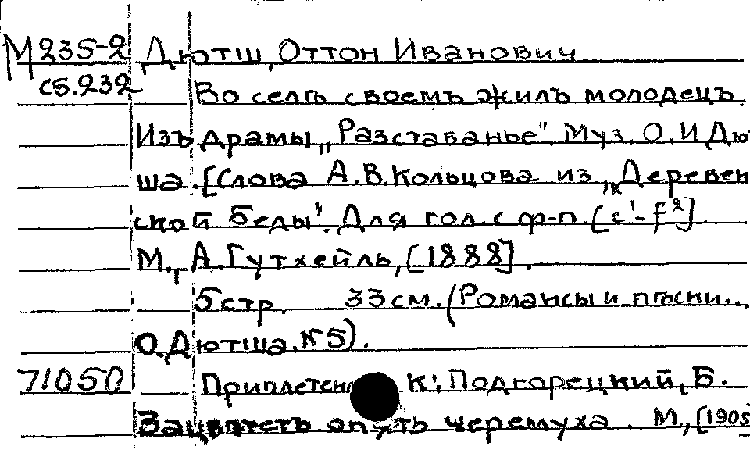 М 235-2 Дютш, Оттон Иванович
сб.232 Во селѣ своемъ жилъ молодецъ.
Изъ драмы „Разставанье" Муз. О. И Дю
ша. [Слова А.В.Кольцова из „Деревен
ской беды". Для гол. с ф-п. [c¹-f²]
М., А. Гутхейль, [1888].
5 стр. 33 см. (Романсы и пѣсни...
О. Дютша. №5).
71050 К: Подгорецкий, Б.
Зацвѣтетъ опять черемуха. М., [1905